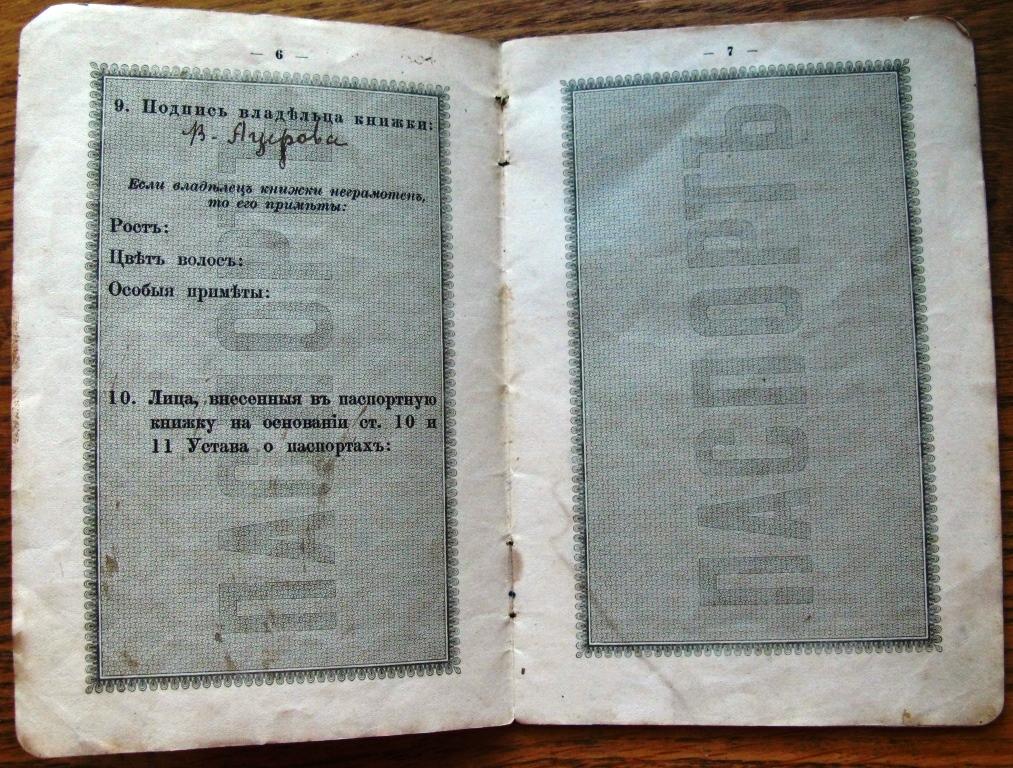 — 6 —
9. Подпись владѣльца книжки:
В. Ацерова
Если владѣлецъ книжки неграмотенъ,
то его примѣты:
Ростъ:
Цвѣтъ волосъ:
Особыя примѣты:
10. Лица, внесенныя въ паспортную
книжку на основаніи ст. 10 и
11 Устава о паспортахъ:
ПАСПОРТЪ
— 7 —
ПАСПОРТЪ